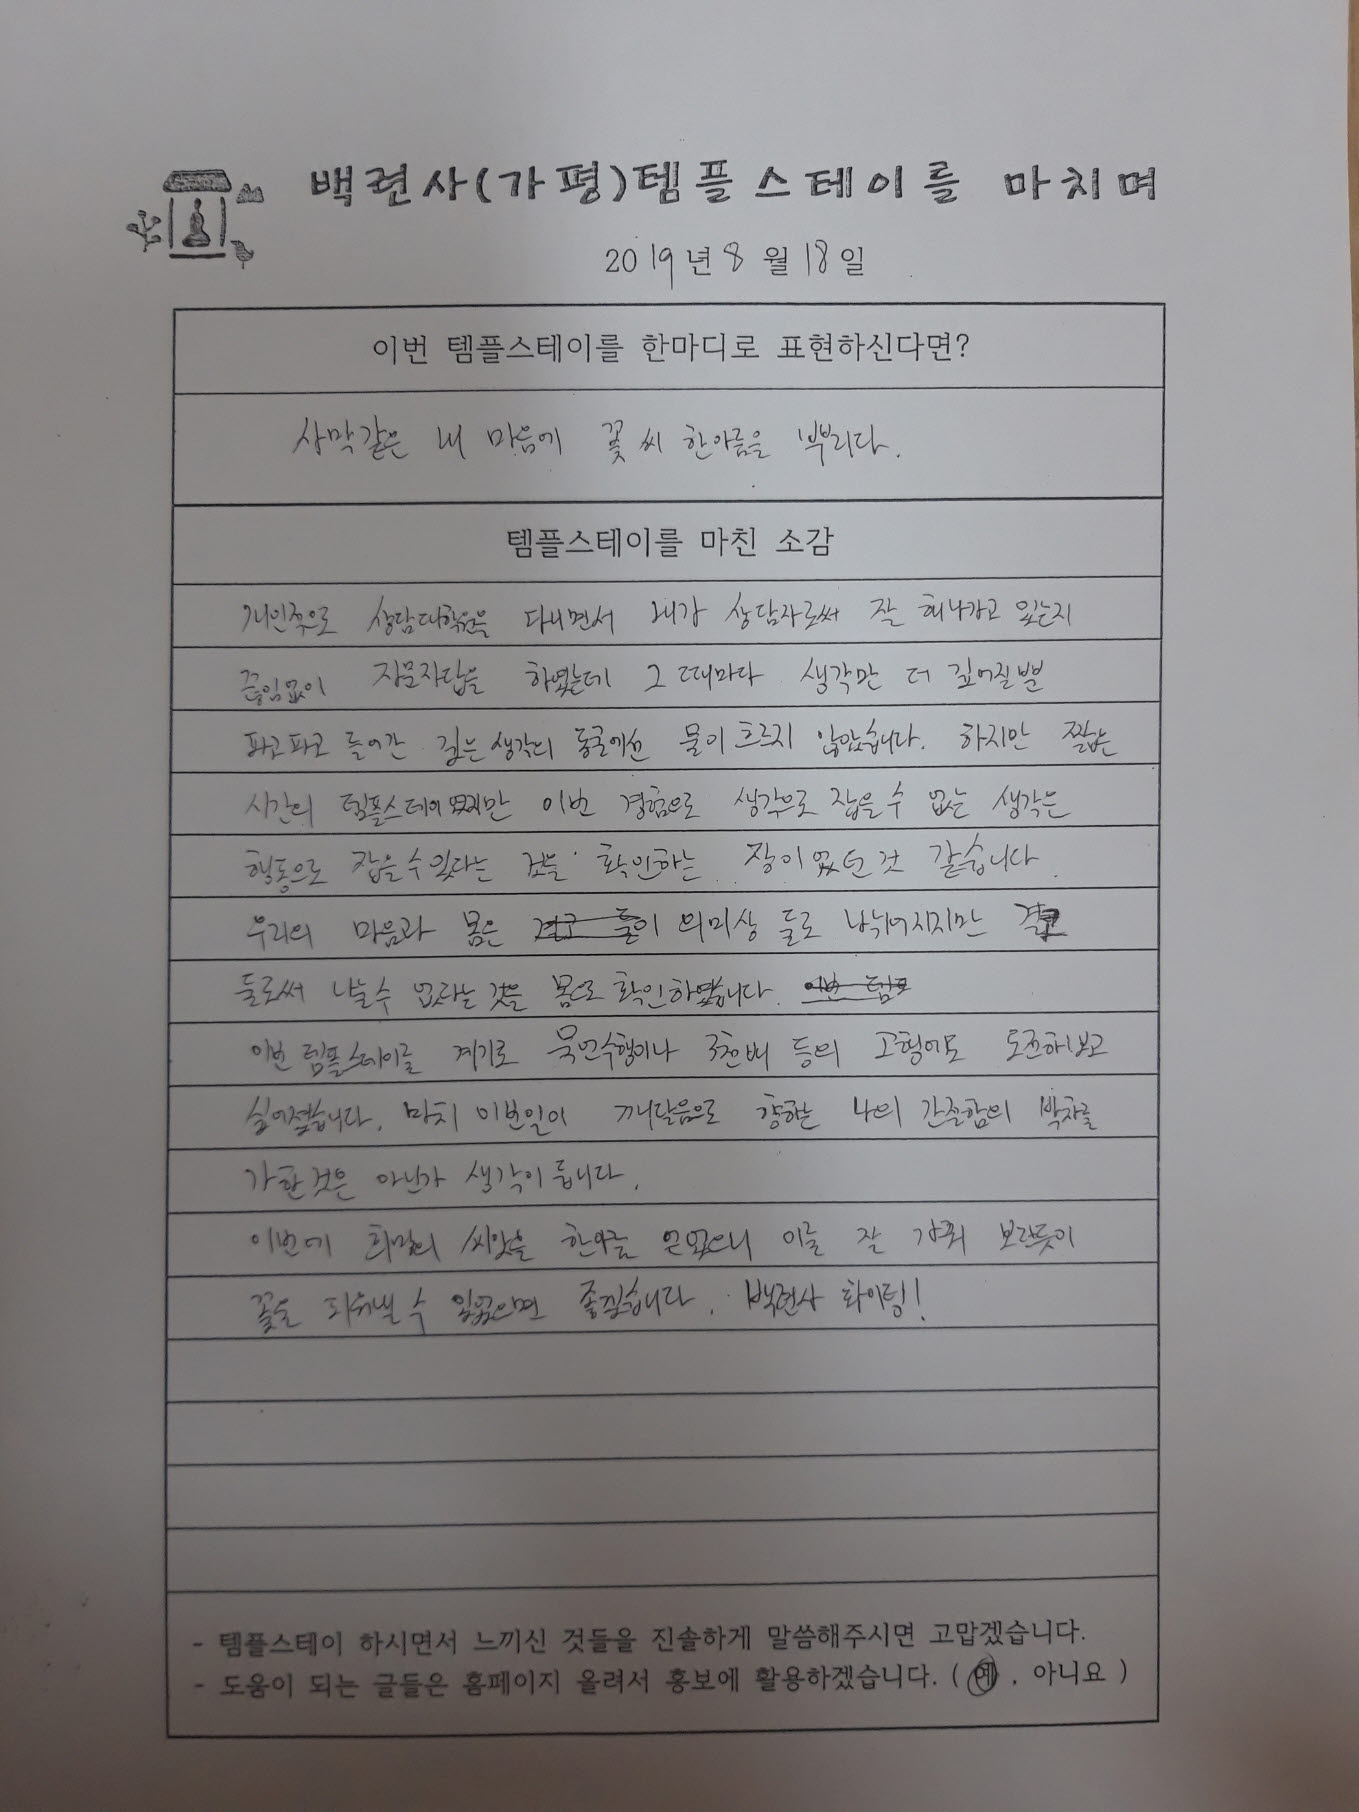 백련사(가평)템플스테이를 마치며
2019년 8월 18일
이번 템플스테이를 한마디로 표현하신다면?
사막같은 내 마음에 꽃씨 한아름을 뿌리다.
템플스테이를 마친 소감
개인적으로 상담대학원을 다니면서 내가 상담자로써 잘 해나가고 있는지
끊임없이 자문자답을 하였는데 그 때마다 생각만 더 깊어질뿐
파고파고 들어간 깊은 생각의 동굴에선 물이 흐르지 않았습니다. 하지만 짧은
시간의 템플스테이였지만 이번 경험으로 생각으로 잡을 수 없는 생각은
행동으로 잡을 수 있다는 것을 확인하는 장이 었던 것 같습니다.
우리의 마음과 몸은 의미상 둘로 나뉘어지지만
둘로써 나눌수 없다라는 것을 몸으로 확인하였습니다.
이번 템플스테이를 계기로 묵언수행이나 3천배 등의 고행에도 도전해보고
싶어졌습니다. 마치 이번일이 깨달음으로 향하는 나의 간절함의 박차를
가한것은 아닌가 생각이 듭니다.
이번에 희망의 씨앗을 한아름 얻었으니 이를 잘 가꿔 보란듯이
꽃을 피워낼 수 있었으면 좋겠습니다. 백련사 화이팅!
- 템플스테이 하시면서 느끼신 것들을 진솔하게 말씀해주시면 고맙겠습니다.
- 도움이 되는 글들은 홈페이지 올려서 홍보에 활용하겠습니다. ( 예 , 아니요 )